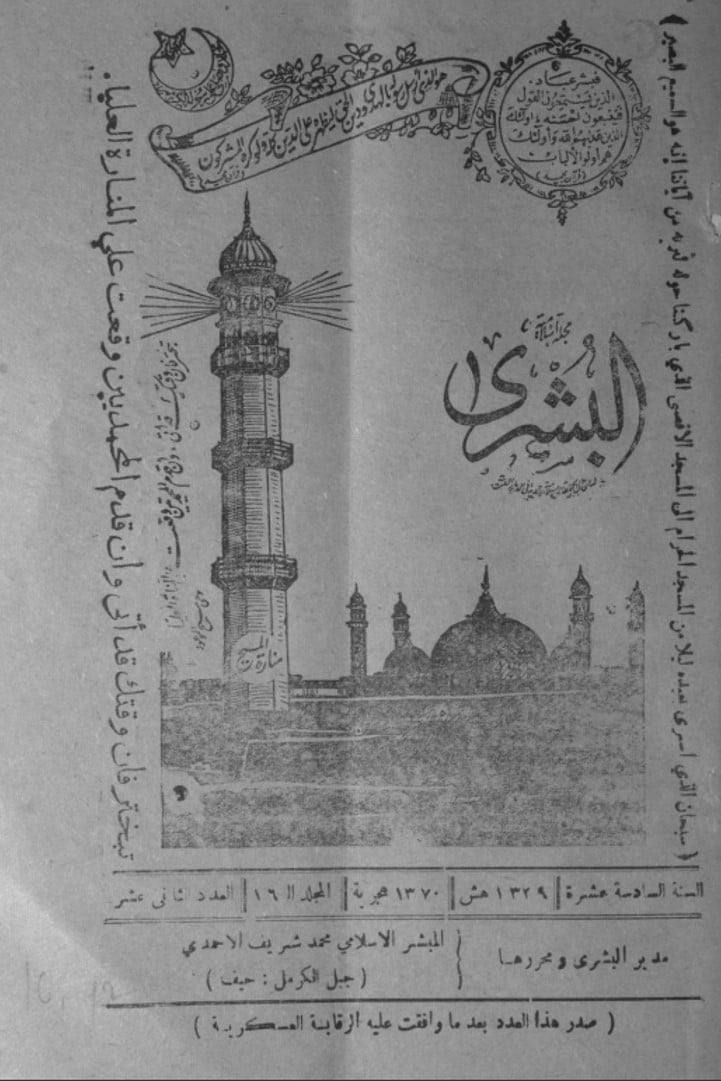 فبشر عباد
الذين يستمعون القول
فيتبعون احسنه اولئك
الذين هداهم الله واولئك
هم اولوا الالباب
(قرآن مجيد)
هو الذي ارسل رسوله بالهدى ودين الحق ليظهره على الدين كله ولو كره المشركون
( سبحان الذي اسرى بعبده ليلا من المسجد الحرام الى المسجد الاقصى الذي باركنا حوله لنريه من آياتنا إنه هو السميع البصير )
البشرى
منارة المسيح
تبختر فان وقتك قد أتى وان قدم المحمديين وقعت على المنارة العليا.
السنة السادسة عشرة | ١٣٢٩ هش | ١٣٧٠ هجرية | المجلد الـ ١٦ | العدد الثاني عشر
مدير البشرى ومحررها { المبشر الاسلامي محمد شريف الاحمدي
( جبل الكرمل : حيف )
( صدر هذا العدد بعد ما وافقت عليه الرقابة العسكرية )